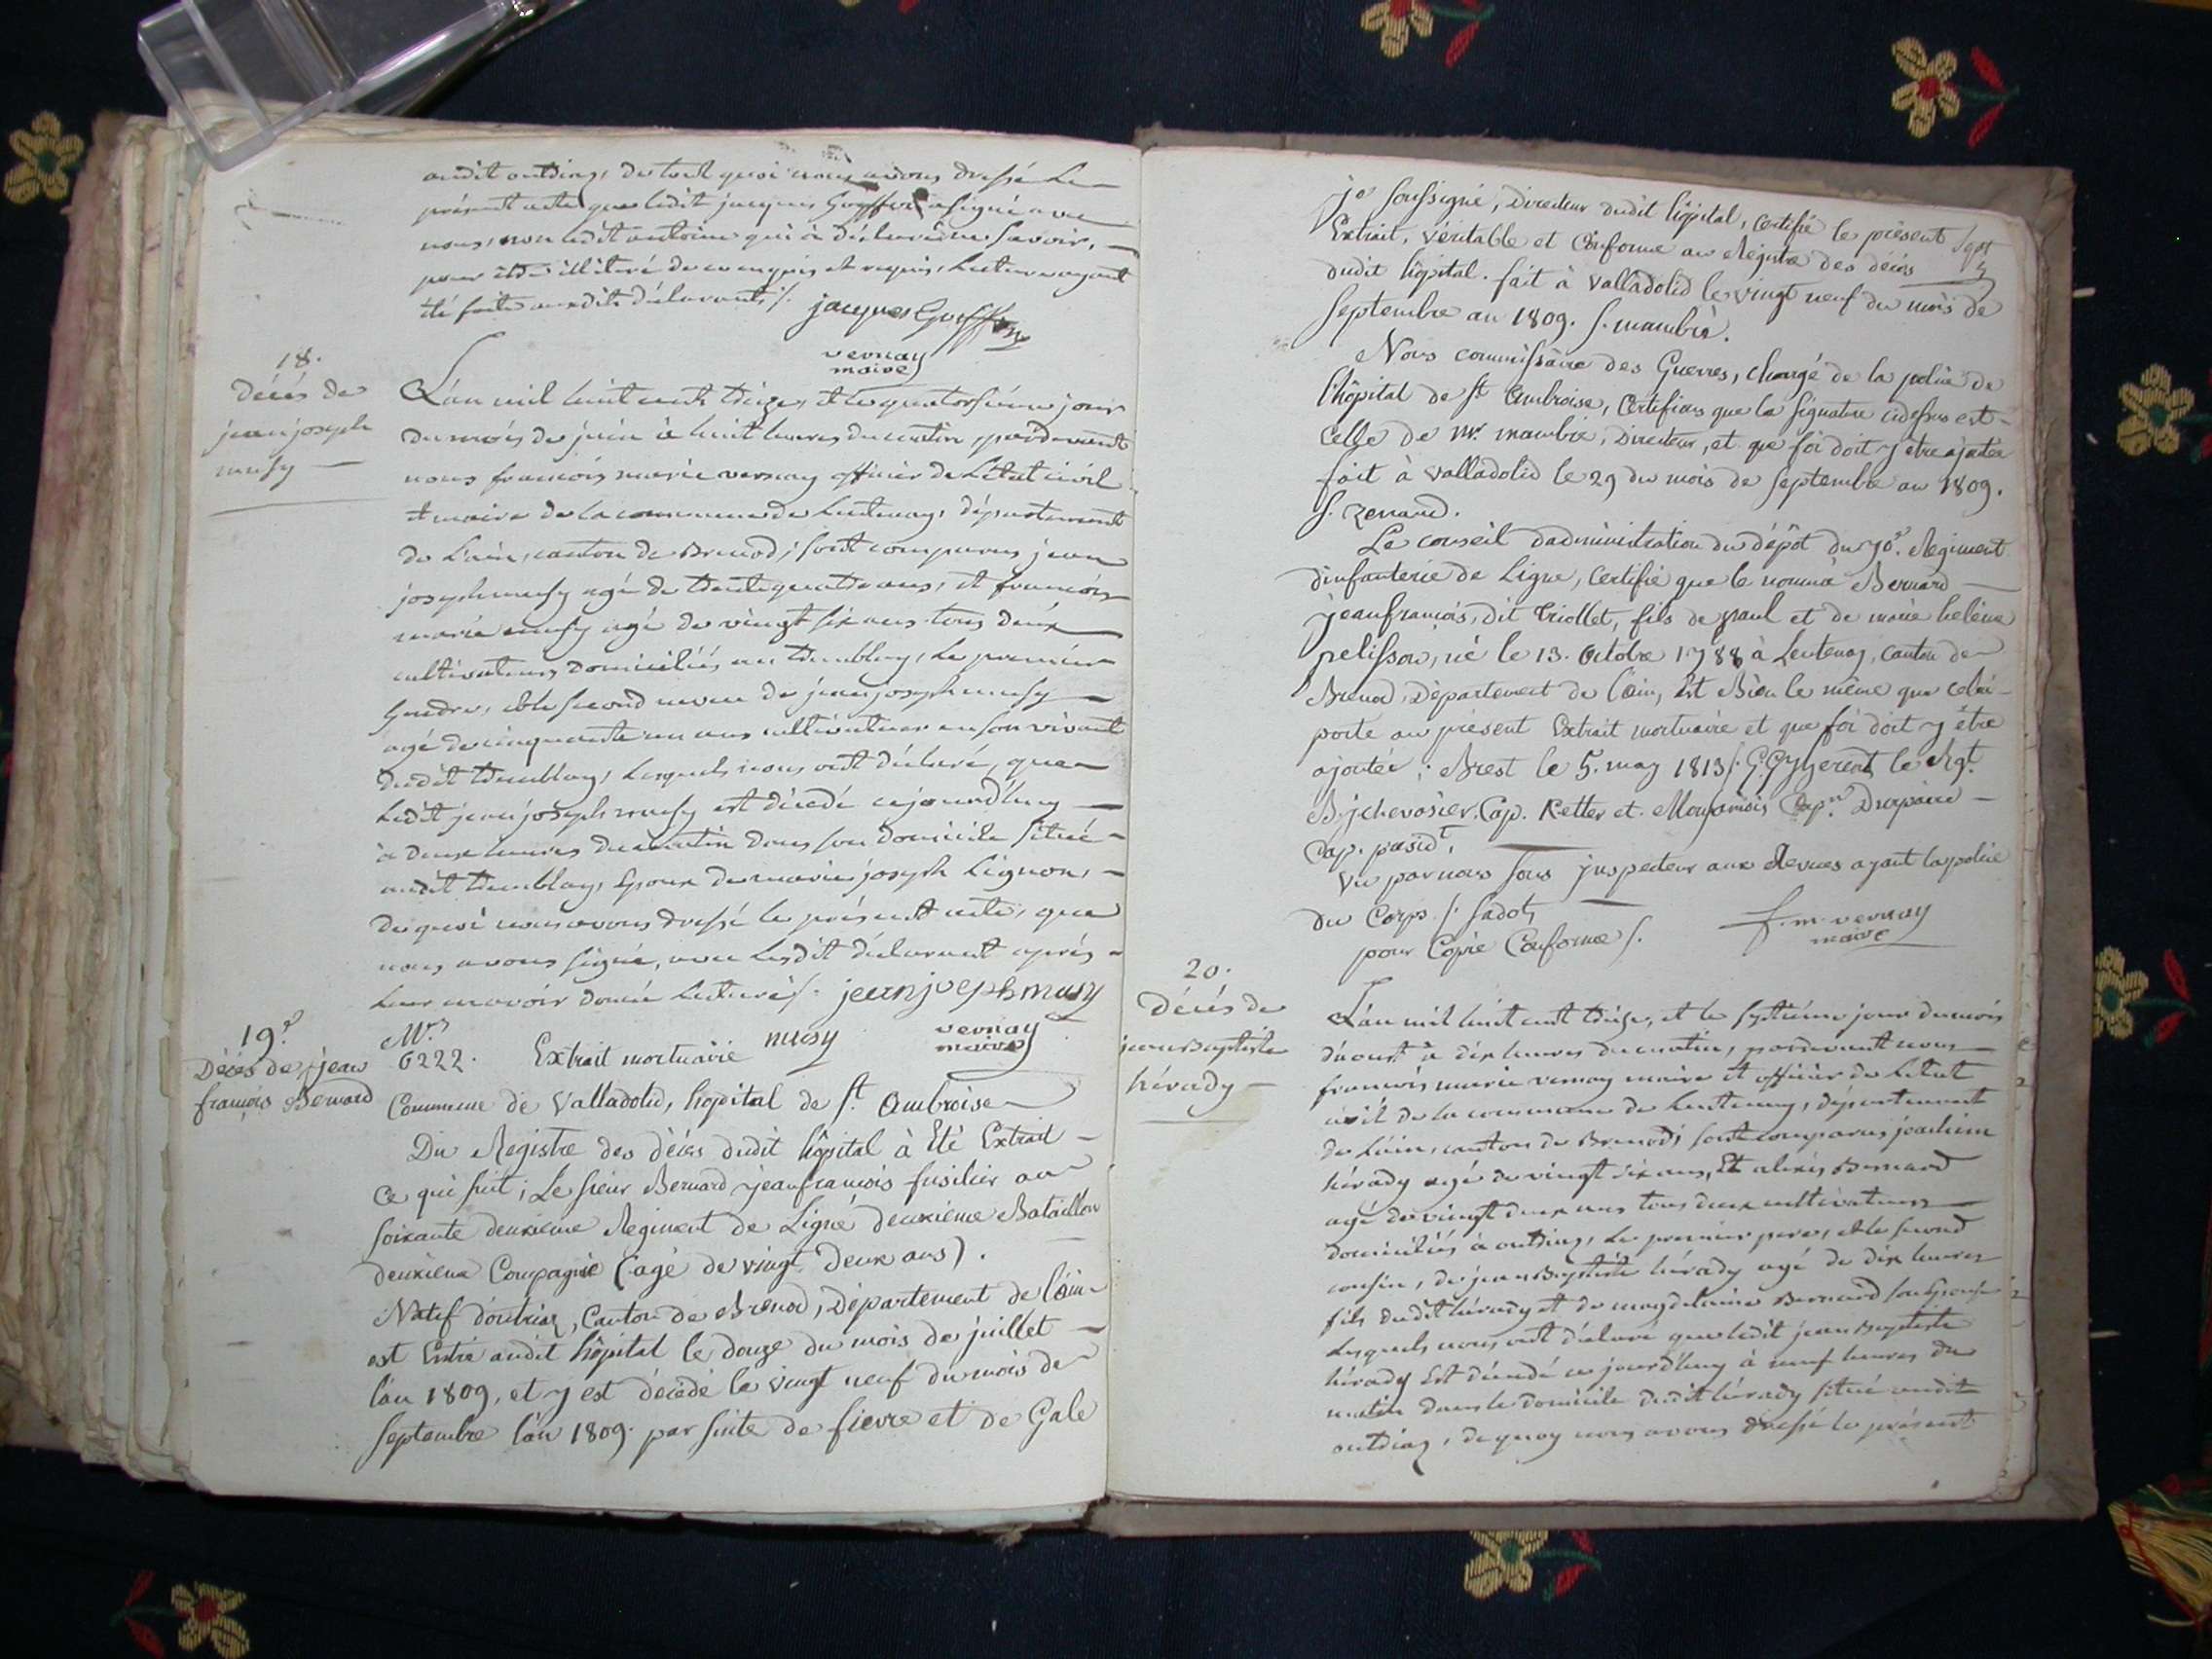 audit outriaz, de tout quoi nous avons dressé le
présent acte que ledit jacques Goyffon a signé avec
nous, non ledit antoine qui a déclaré ne savoir,
pour être illitéré de ce enquis et requis, lecture ayant
été faite auxdits déclarants /. jacques Goyffon
vernay
maire
18.
décès de
jean joseph
musy
L'an mil huit cents treize, et le quatorsième jour
du mois de juin à huit heures du matin, pardevant
nous francois marie vernay officier de L'état civil
et maire de la commune de Lentenay, département
de L'ain, canton de Brenod; sont comparus jean
joseph musy agé de trente quatre ans, et francois
marie musy agé de vingt six ans tous deux
cultivateurs domiciliés au tremblay, le premier
gendre, et le second neveu de jean joseph musy
agé de cinquante un ans cultivateur en son vivant
dudit tremblay, lesquels nous ont déclaré, que
ledit jean joseph musy est décédé cejourd'huy
à deux heures du matin dans son domicile situé
audit tremblay, Epoux de marie joseph Lignon,
de quoi nous avons dressé le présent acte, que
nous avons signé, avec lesdit déclarant après
leur en avoir donné lecture /. jean joseph musy
musy vernay
maire
19.e
Décès de jean
françois Bernard
N.o
6222. Extrait mortuaire
Commune de Valladolid, hôpital de St. Ambroise
Du Registre des décès dudit hôpital à Eté Extrait
ce qui suit; Le sieur Bernard jean francois fusilier au
soixante deuxième Regiment de Ligne deuxième Bataillon
deuxième Compagnie (agé de vingt deux ans).
Natif d'outriaz, Canton de Brenod, Département de l'ain
est Entré audit hôpital le douze du mois de juillet
l'an 1809, et y est décédé le vingt neuf du mois de
septembre l'an 1809. par suite de fievre et de Gale
je soussigné, Directeur dudit hôpital, certifie le présent
Extrait, véritable et Conforme au Registre des décès
dudit hôpital. fait à Valladolid le vingt neuf du mois de
septembre an 1809. S. mambré.
Nous commissaire des Guerres, chargé de la police de
l'hôpital de St Ambroise, Certifions que la signature cidessus est
celle de Mr. mambré, Directeur, et que foi doit y être ajoutée
fait à Valladolid le 29 du mois de septembre an 1809.
S. Renard.
Le conseil d'administration du dépôt du 70e. Regiment
d'infanterie de Ligne, Certifie que le nommé Bernard
jean françois, dit triollet, fils de paul et de marie helène
pelisson, né le 13. Octobre 1788 à Lentenay, canton de
Brenod, Département de l'ain, est Bien le même que celui
porté au présent Extrait mortuaire et que foi doit y être
ajoutée; Brest le 5. may 1813 /. le Rgt.
Cap. Ketter et Cap.n
Cap. présid.t
Vu par nous sous jnspecteur aux Revues ayant la police
du Corps /. sadot
pour Copie Conforme /. f. m. vernay
maire
20.
décès de
jean Baptiste
hérady
L'an mil huit cent treize, et le septième jour du mois
d'aoust à dix heures du matin, pardevant nous
francois marie vernay maire et officier de L'état
civil de la commune de Lentenay, département
de L'ain, canton de Brenod; sont comparus joachim
hérady agé de vingt six ans, Et alexis Bernard
agé de vingt deux ans tous deux cultivateurs
domiciliés à outriaz, le premier pere, et le second
cousin, de jean Baptiste hérady agé de dix heures
fils dudit hérady et de magdelaine Bernard son Epouse
Lesquels nous ont déclaré que ledit jean Baptiste
hérady Est décédé ce jourd'huy à neuf heures du
matin dans le domicile dudit hérady situé audit
outriaz, de quoy nous avons dressé le présent